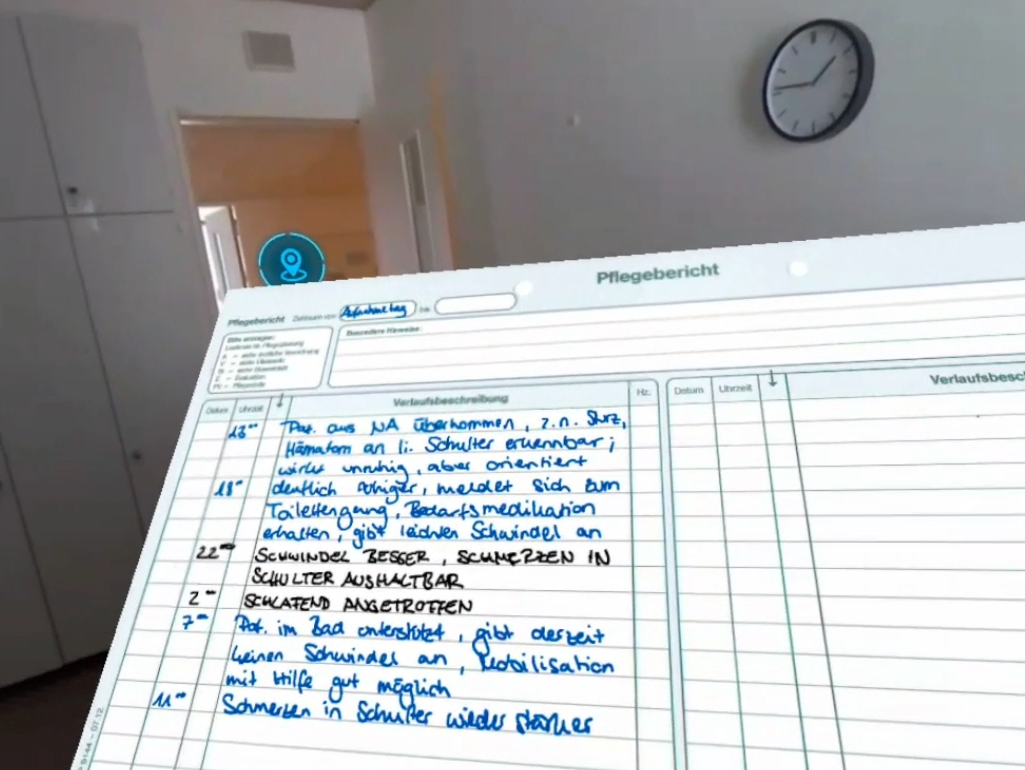 Pflegebericht
Pflegebericht Zeitraum von Aufnahmetag bis
Besondere Hinweise:
Datum Uhrzeit Verlaufsbeschreibung Hz. Datum Uhrzeit Verlaufsbesch
13⁰⁰ Pat. aus NA übernommen, z.n. Sturz,
Hämatom an li. Schulter erkennbar;
wirkt unruhig, aber orientiert
18⁰⁰ deutlich ruhiger, meldet sich zum
Toilettengang, Bedarfsmedikation
erhalten, gibt leichten Schwindel an
22⁰⁰ SCHWINDEL BESSER, SCHMERZEN IN
SCHULTER AUSHALTBAR
2⁰⁰ SCHLAFEND ANGETROFFEN
7⁰⁰ Pat. im Bad unterstützt, gibt derzeit
keinen Schwindel an, Mobilisation
mit Hilfe gut möglich
11⁰⁰ Schmerzen in Schulter wieder stärker